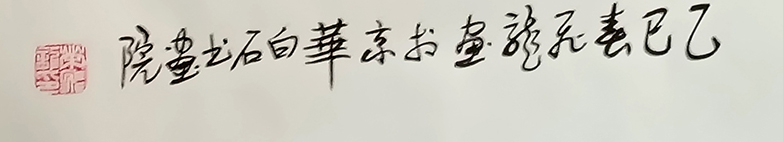 乙巳春飛龍畫於京華白石书畫院